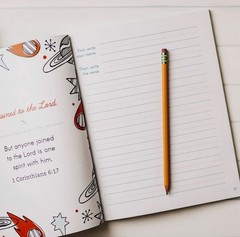 joined to the Lord
But anyone joined
to the Lord is one
spirit with him.
1 Corinthians 6:17
First, write
the name
Then, write
the name